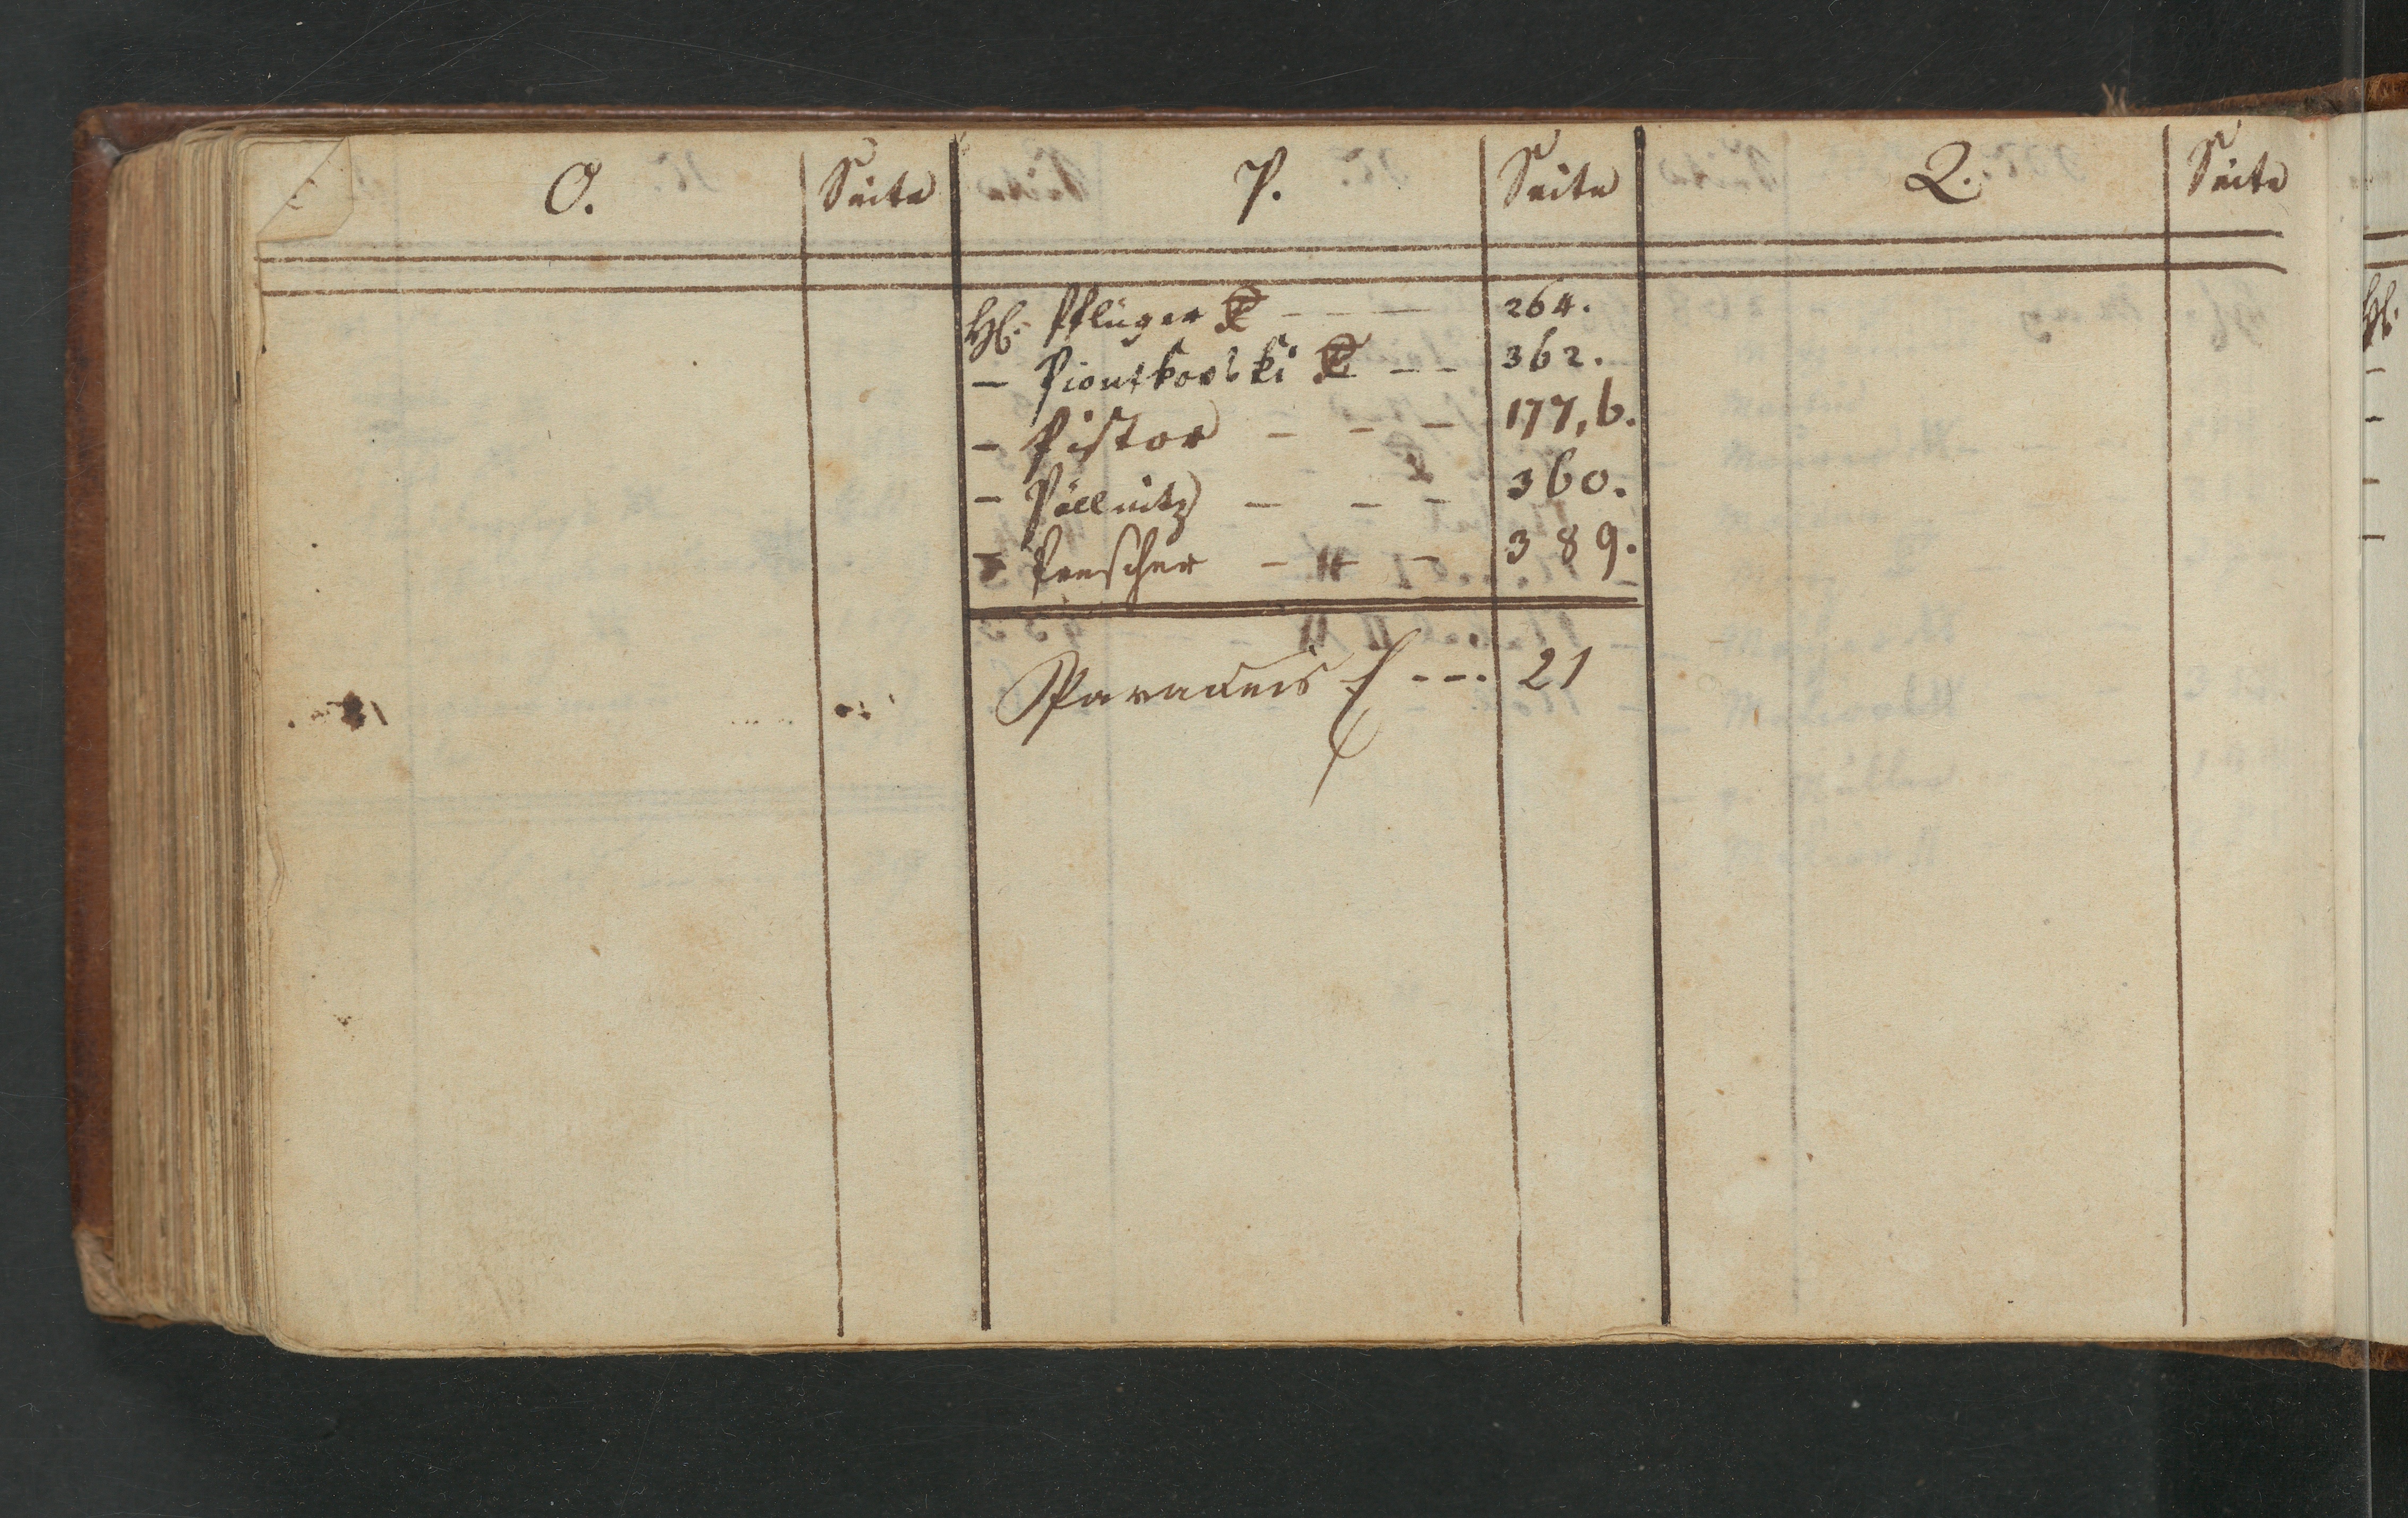 O. Seite P. Seite Q. Seite
Hl. Pflüger - - - 264.
- Piontkovski - - 362.
- Pistor - - - 177, b.
- Pöllnitz - - - 360.
- Prescher - - 389.
Paradeis --- 21